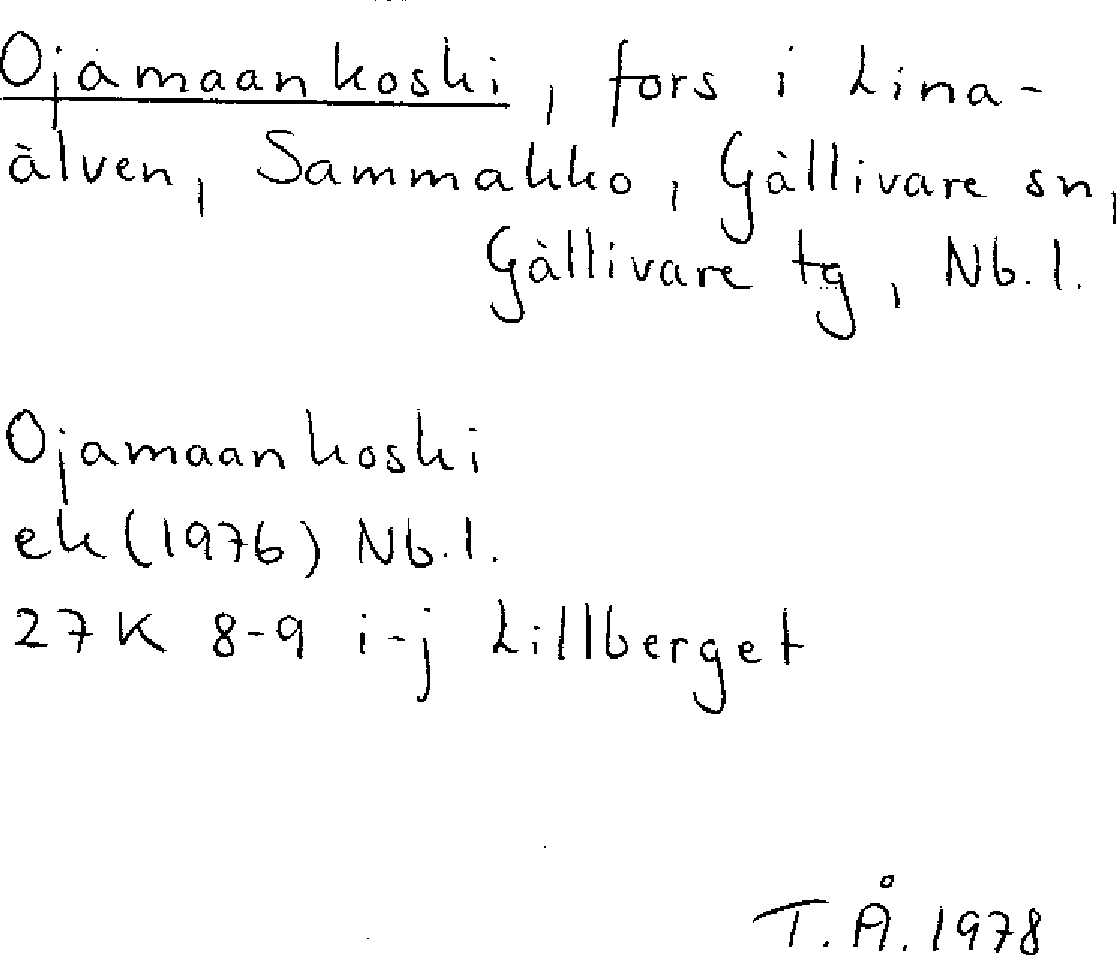 Ojamaankoski, fors i Lina-
älven, Sammakko, Gällivare sn,
Gällivare tg, Nb.l.
Ojamaankoski
ek (1976) Nb.l.
27K 8-9 i-j Lillberget
T.Å. 1978